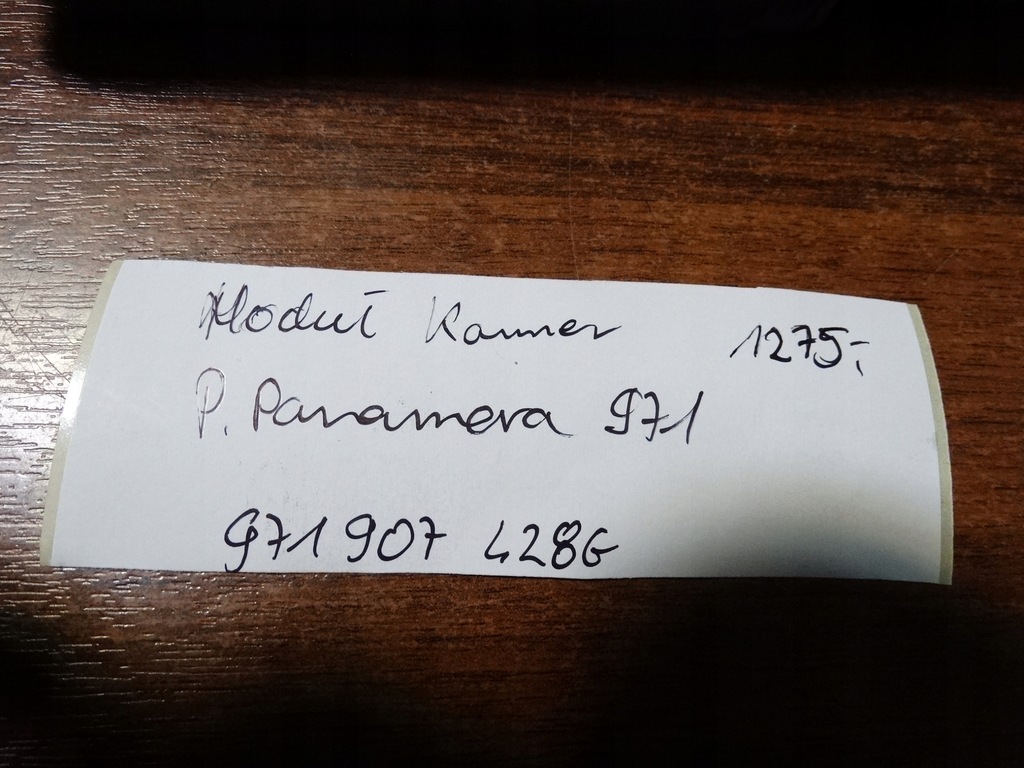 Moduł Kamer 1275,-
P. Panamera 971
971 907 428G